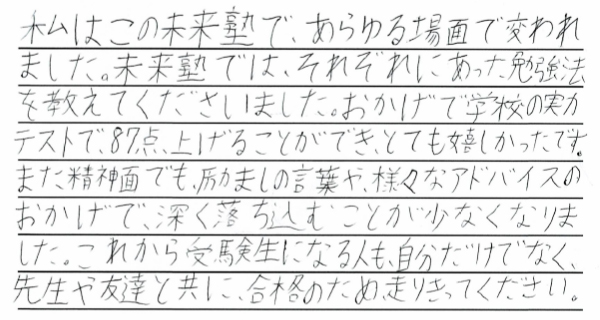 私はこの未来塾で、あらゆる場面で変われ
ました。未来塾では、それぞれにあった勉強法
を教えてくださいました。おかげで学校の実力
テストで、87点、上げることができ、とても嬉しかったです。
また精神面でも、励ましの言葉や、様々なアドバイスの
おかげで、深く落ち込むことが少なくなりま
した。これから受験生になる人も、自分だけでなく、
先生や友達と共に、合格のため、走りきってください。